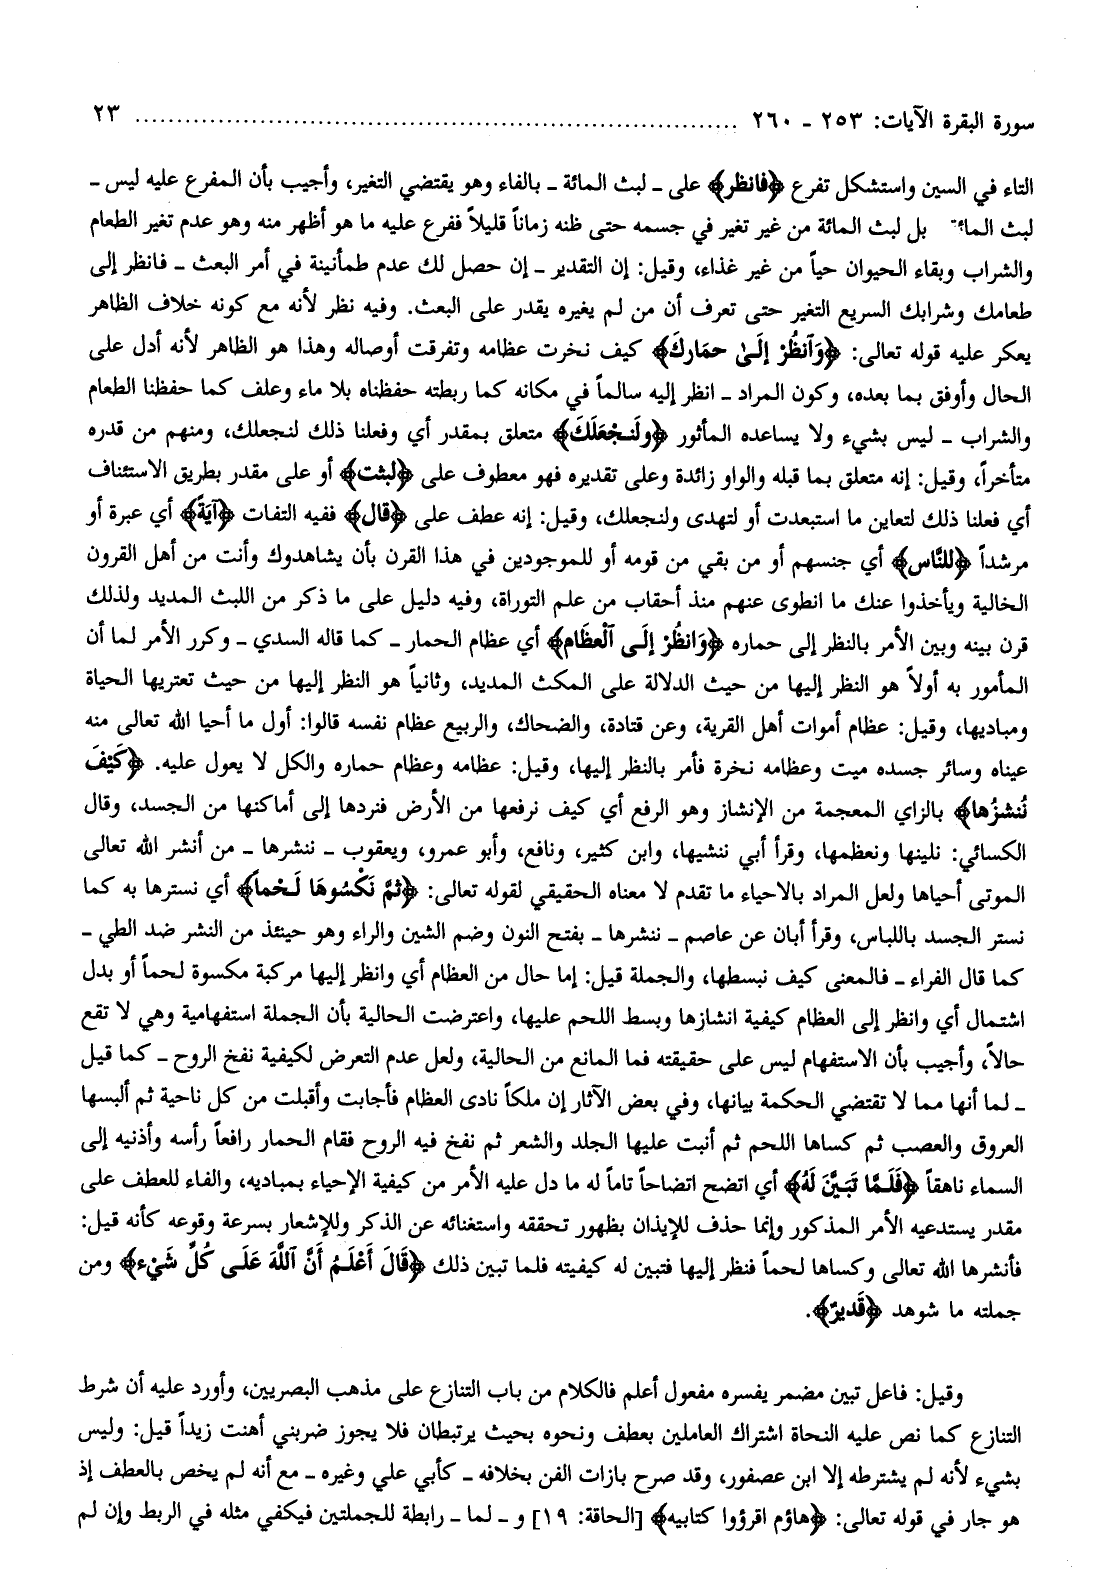 سورة البقرة الآيات: ٢٥٣ ـ ٢٦٠ ........................................................................ ٢٣
التاء في السين واستشكل تفرع ﴿فانظر﴾ على ـ لبث المائة ـ بالفاء وهو يقتضي التغير، وأجيب بأن المفرع عليه ليس ـ
لبث المائة بل لبث المائة من غير تغير في جسمه حتى ظنه زماناً قليلاً ففرع عليه ما هو أظهر منه وهو عدم تغير الطعام
والشراب وبقاء الحيوان حياً من غير غذاء، وقيل: إن التقدير ـ إن حصل لك عدم طمأنينة في أمر البعث ـ فانظر إلى
طعامك وشرابك السريع التغير حتى تعرف أن من لم يغيره يقدر على البعث. وفيه نظر لأنه مع كونه خلاف الظاهر
يعكر عليه قوله تعالى: ﴿وَٱنظُرْ إِلَىٰ حمَارِكَ﴾ كيف نخرت عظامه وتفرقت أوصاله وهذا هو الظاهر لأنه أدل على
الحال وأوفق بما بعده، وكون المراد ـ انظر إليه سالماً في مكانه كما ربطته حفظناه بلا ماء وعلف كما حفظنا الطعام
والشراب ـ ليس بشيء ولا يساعده المأثور ﴿ولَنجْعَلَكَ﴾ متعلق بمقدر أي وفعلنا ذلك لنجعلك، ومنهم من قدره
متأخراً، وقيل: إنه متعلق بما قبله والواو زائدة وعلى تقديره فهو معطوف على ﴿لبثت﴾ أو على مقدر بطريق الاستئناف
أي فعلنا ذلك لتعاين ما استبعدت أو لتهدى ولنجعلك، وقيل: إنه عطف على ﴿قال﴾ ففيه التفات ﴿آيَةً﴾ أي عبرة أو
مرشداً ﴿للنَّاس﴾ أي جنسهم أو من بقي من قومه أو للموجودين في هذا القرن بأن يشاهدوك وأنت من أهل القرون
الخالية ويأخذوا عنك ما انطوى عنهم منذ أحقاب من علم التوراة، وفيه دليل على ما ذكر من اللبث المديد ولذلك
قرن بينه وبين الأمر بالنظر إلى حماره ﴿وَانظُرْ إلَى ٱلْعظَام﴾ أي عظام الحمار ـ كما قاله السدي ـ وكرر الأمر لما أن
المأمور به أولاً هو النظر إليها من حيث الدلالة على المكث المديد، وثانياً هو النظر إليها من حيث تعتريها الحياة
ومباديها، وقيل: عظام أموات أهل القرية، وعن قتادة، والضحاك، والربيع عظام نفسه قالوا: أول ما أحيا الله تعالى منه
عيناه وسائر جسده ميت وعظامه نخرة فأمر بالنظر إليها، وقيل: عظامه وعظام حماره والكل لا يعول عليه. ﴿كَيْفَ
نُنشزُها﴾ بالزاي المعجمة من الإنشاز وهو الرفع أي كيف نرفعها من الأرض فنردها إلى أماكنها من الجسد، وقال
الكسائي: نلينها ونعظمها، وقرأ أبي ننشيها، وابن كثير، ونافع، وأبو عمرو، ويعقوب ـ ننشرها ـ من أنشر الله تعالى
الموتى أحياها ولعل المراد بالاحياء ما تقدم لا معناه الحقيقي لقوله تعالى: ﴿ثمَّ نَكْسُوهَا لَحْماً﴾ أي نسترها به كما
نستر الجسد باللباس، وقرأ أبان عن عاصم ـ ننشرها ـ بفتح النون وضم الشين والراء وهو حينئذ من النشر ضد الطي ـ
كما قال الفراء ـ فالمعنى كيف نبسطها، والجملة قيل: إما حال من العظام أي وانظر إليها مركبة مكسوة لحماً أو بدل
اشتمال أي وانظر إلى العظام كيفية انشازها وبسط اللحم عليها، واعترضت الحالية بأن الجملة استفهامية وهي لا تقع
حالاً، وأجيب بأن الاستفهام ليس على حقيقته فما المانع من الحالية، ولعل عدم التعرض لكيفية نفخ الروح ـ كما قيل
ـ لما أنها مما لا تقتضي الحكمة بيانها، وفي بعض الآثار إن ملكاً نادى العظام فأجابت وأقبلت من كل ناحية ثم ألبسها
العروق والعصب ثم كساها اللحم ثم أنبت عليها الجلد والشعر ثم نفخ فيه الروح فقام الحمار رافعاً رأسه وأذنيه إلى
السماء ناهقاً ﴿فَلَمَّا تَبَيَّنَ لَهُ﴾ أي اتضح اتضاحاً تاماً له ما دل عليه الأمر من كيفية الإحياء بمباديه، والفاء للعطف على
مقدر يستدعيه الأمر المذكور وإنما حذف للإيذان بظهور تحققه واستغنائه عن الذكر وللإشعار بسرعة وقوعه كأنه قيل:
فأنشرها الله تعالى وكساها لحماً فنظر إليها فتبين له كيفيته فلما تبين ذلك ﴿قَالَ أَعْلَمُ أَنَّ ٱللَّهَ عَلَى كُلِّ شَيْء﴾ ومن
جملته ما شوهد ﴿قَديرٌ﴾.
وقيل: فاعل تبين مضمر يفسره مفعول أعلم فالكلام من باب التنازع على مذهب البصريين، وأورد عليه أن شرط
التنازع كما نص عليه النحاة اشتراك العاملين بعطف ونحوه بحيث يرتبطان فلا يجوز ضربني أهنت زيداً قيل: وليس
بشيء لأنه لم يشترطه إلا ابن عصفور، وقد صرح بازات الفن بخلافه ـ كأبي علي وغيره ـ مع أنه لم يخص بالعطف إذ
هو جار في قوله تعالى: ﴿هاؤم اقرؤوا كتابيه﴾ [الحاقة: ١٩] و ـ لما ـ رابطة للجملتين فيكفي مثله في الربط وإن لم